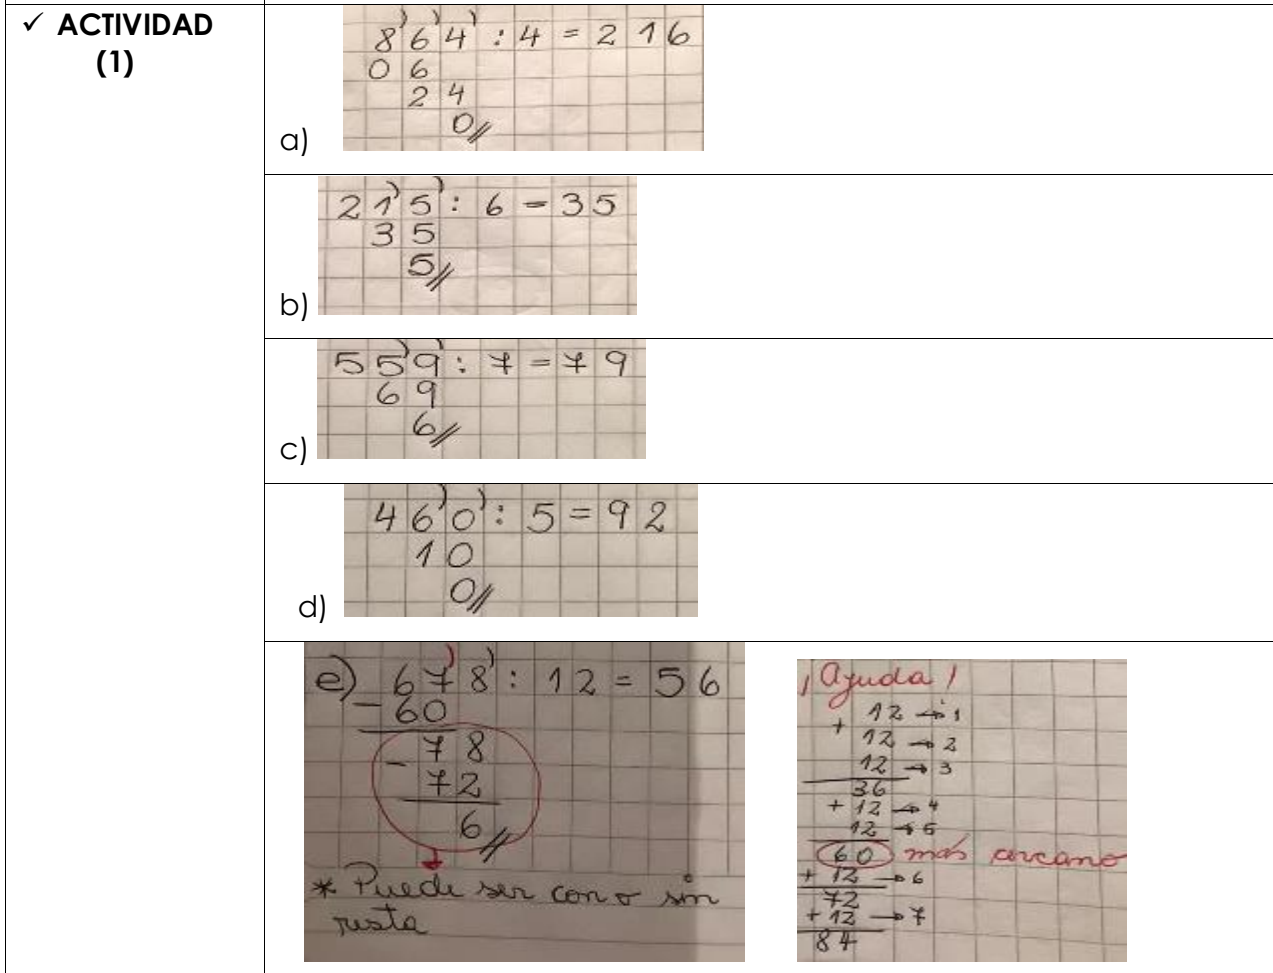 ✓ ACTIVIDAD
(1)
a)
8 6 4 : 4 = 2 1 6
0 6
2 4
0
b)
2 1 5 : 6 = 3 5
3 5
5
c)
5 5 9 : 7 = 7 9
6 9
6
d)
4 6 0 : 5 = 9 2
1 0
0
e) 6 7 8 : 12 = 5 6
- 60
7 8
- 7 2
6
* Puede ser con o sin
resta
¡Ayuda!
12 → 1
+ 12 → 2
12 → 3
36
+ 12 → 4
12 → 5
60 más cercano
+ 12 → 6
72
+ 12 → 7
84